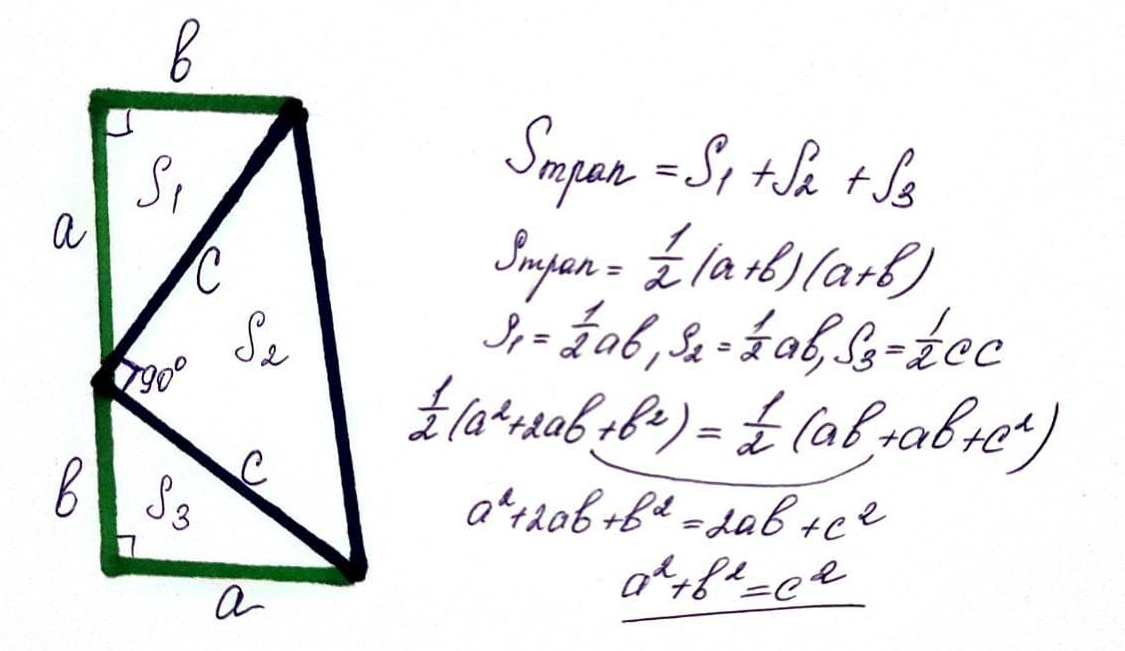 b
a
S₁
c
S₂
90°
b
c
S₃
a
Sтрап = S₁ + S₂ + S₃
Sтрап = 1/2 (a+b)(a+b)
S₁ = 1/2 ab, S₂ = 1/2 ab, S₃ = 1/2 cc
1/2 (a²+2ab+b²) = 1/2 (ab+ab+c²)
a²+2ab+b² = 2ab+c²
a²+b²=c²